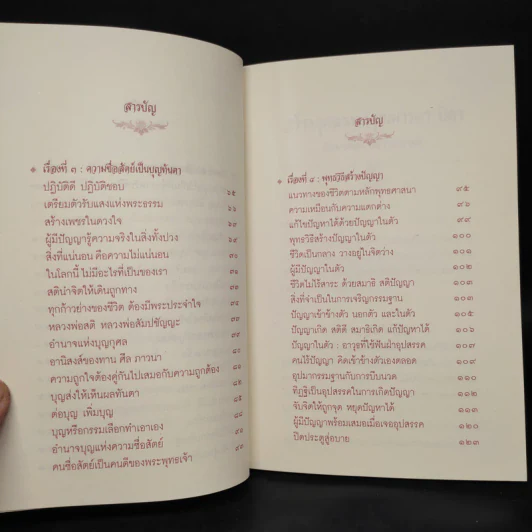 สารบัญ
❖ เรื่องที่ ๓ : ความซื่อสัตย์เป็นบุญทันตา
ปฏิบัติดี ปฏิบัติชอบ ๖๕
เตรียมตัวรับแสงแห่งพระธรรม ๖๖
สร้างเพชรในดวงใจ
ผู้มีปัญญารู้ความจริงในสิ่งทั้งปวง
สิ่งที่แน่นอน คือความไม่แน่นอน
ในโลกนี้ ไม่มีอะไรที่เป็นของเรา
สตินำจิตให้เดินถูกทาง
ทุกก้าวย่างของชีวิต ต้องมีพระประจำใจ
หลวงพ่อสติ หลวงพ่อสัมปชัญญะ
อำนาจแห่งบุญกุศล
อานิสงส์ของทาน ศีล ภาวนา
ความถูกใจต้องคู่กันไปเสมอกับความถูกต้อง
บุญส่งให้เห็นผลทันตา
ต่อบุญ เพิ่มบุญ
บุญหรือกรรมเลือกทำเอาเอง
อำนาจบุญแห่งความซื่อสัตย์
คนซื่อสัตย์เป็นคนดีของพระพุทธเจ้า
สารบัญ
❖ เรื่องที่ ๔ : พุทธวิธีสร้างปัญญา
แนวทางของชีวิตตามหลักพุทธศาสนา ๙๕
ความเหมือนกับความแตกต่าง
แก้ไขปัญหาได้ด้วยปัญญาในตัว ๙๙
พุทธวิธีสร้างปัญญาในตัว ๑๐๐
ชีวิตเป็นกลาง วางอยู่ในจิตว่าง
ผู้มีปัญญาในตัว ๑๐๒
ชีวิตไม่ไร้สาระ ด้วยสมาธิ สติปัญญา
สิ่งที่จำเป็นในการเจริญกรรมฐาน
ปัญญาเข้าข้างตัว นอกตัว และในตัว ๑๐๕
ปัญญาเกิด สติดี สมาธิเกิด แก้ปัญหาได้
ปัญญาในตัว : อาวุธที่ใช้ฟันฝ่าอุปสรรค ๑๐๗
คนไร้ปัญญา คิดเข้าข้างตัวเองตลอด ๑๐๙
อุปมากรรมฐานกับการบีบนวด
ทิฏฐิเป็นอุปสรรคในการเกิดปัญญา
จับจิตให้ถูกจุด หยุดปัญหาได้
ผู้มีปัญญาพร้อมเสมอเมื่อเจออุปสรรค ๑๒๐
ปิดประตูสู่อบาย ๑๒๓